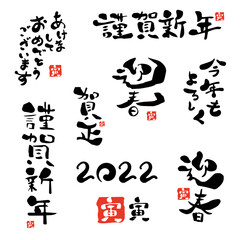 あけま
して
おめでとう
ございます
寅
謹賀新年
寅
迎春
寅
今年も
よろしく
謹賀新年
寅
賀正
寅
2022
寅
寅
迎春
寅